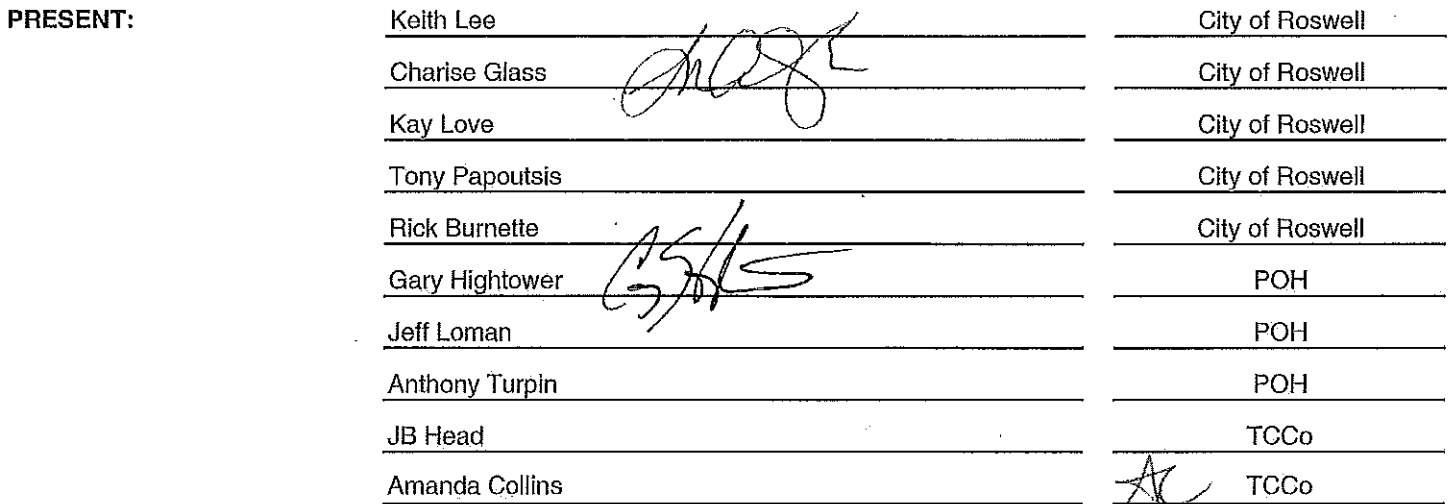 PRESENT: Keith Lee City of Roswell
Charise Glass City of Roswell
Kay Love City of Roswell
Tony Papoutsis City of Roswell
Rick Burnette City of Roswell
Gary Hightower POH
Jeff Loman POH
Anthony Turpin POH
JB Head TCCo
Amanda Collins AC TCCo